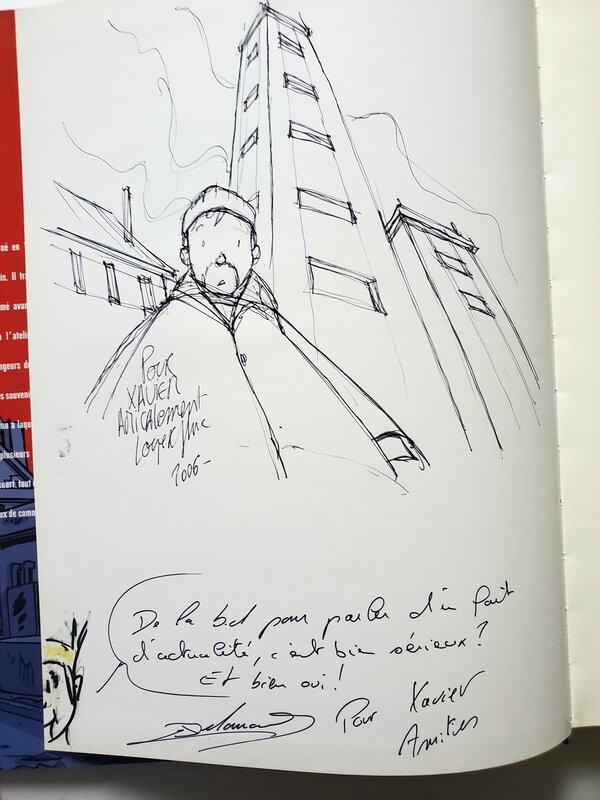 né en
is. Il tra
né avan
à l'ateli
ngeurs de
s souveni
on à laqu
plusieurs
court, tout
ux de comm
Pour
XAVIER
AMICALEMENT
2006-
De la bd pour parler d'un fait
d'actualité, c'est bien sérieux ?
Et bien oui !
Pour Xavier
Amitiés